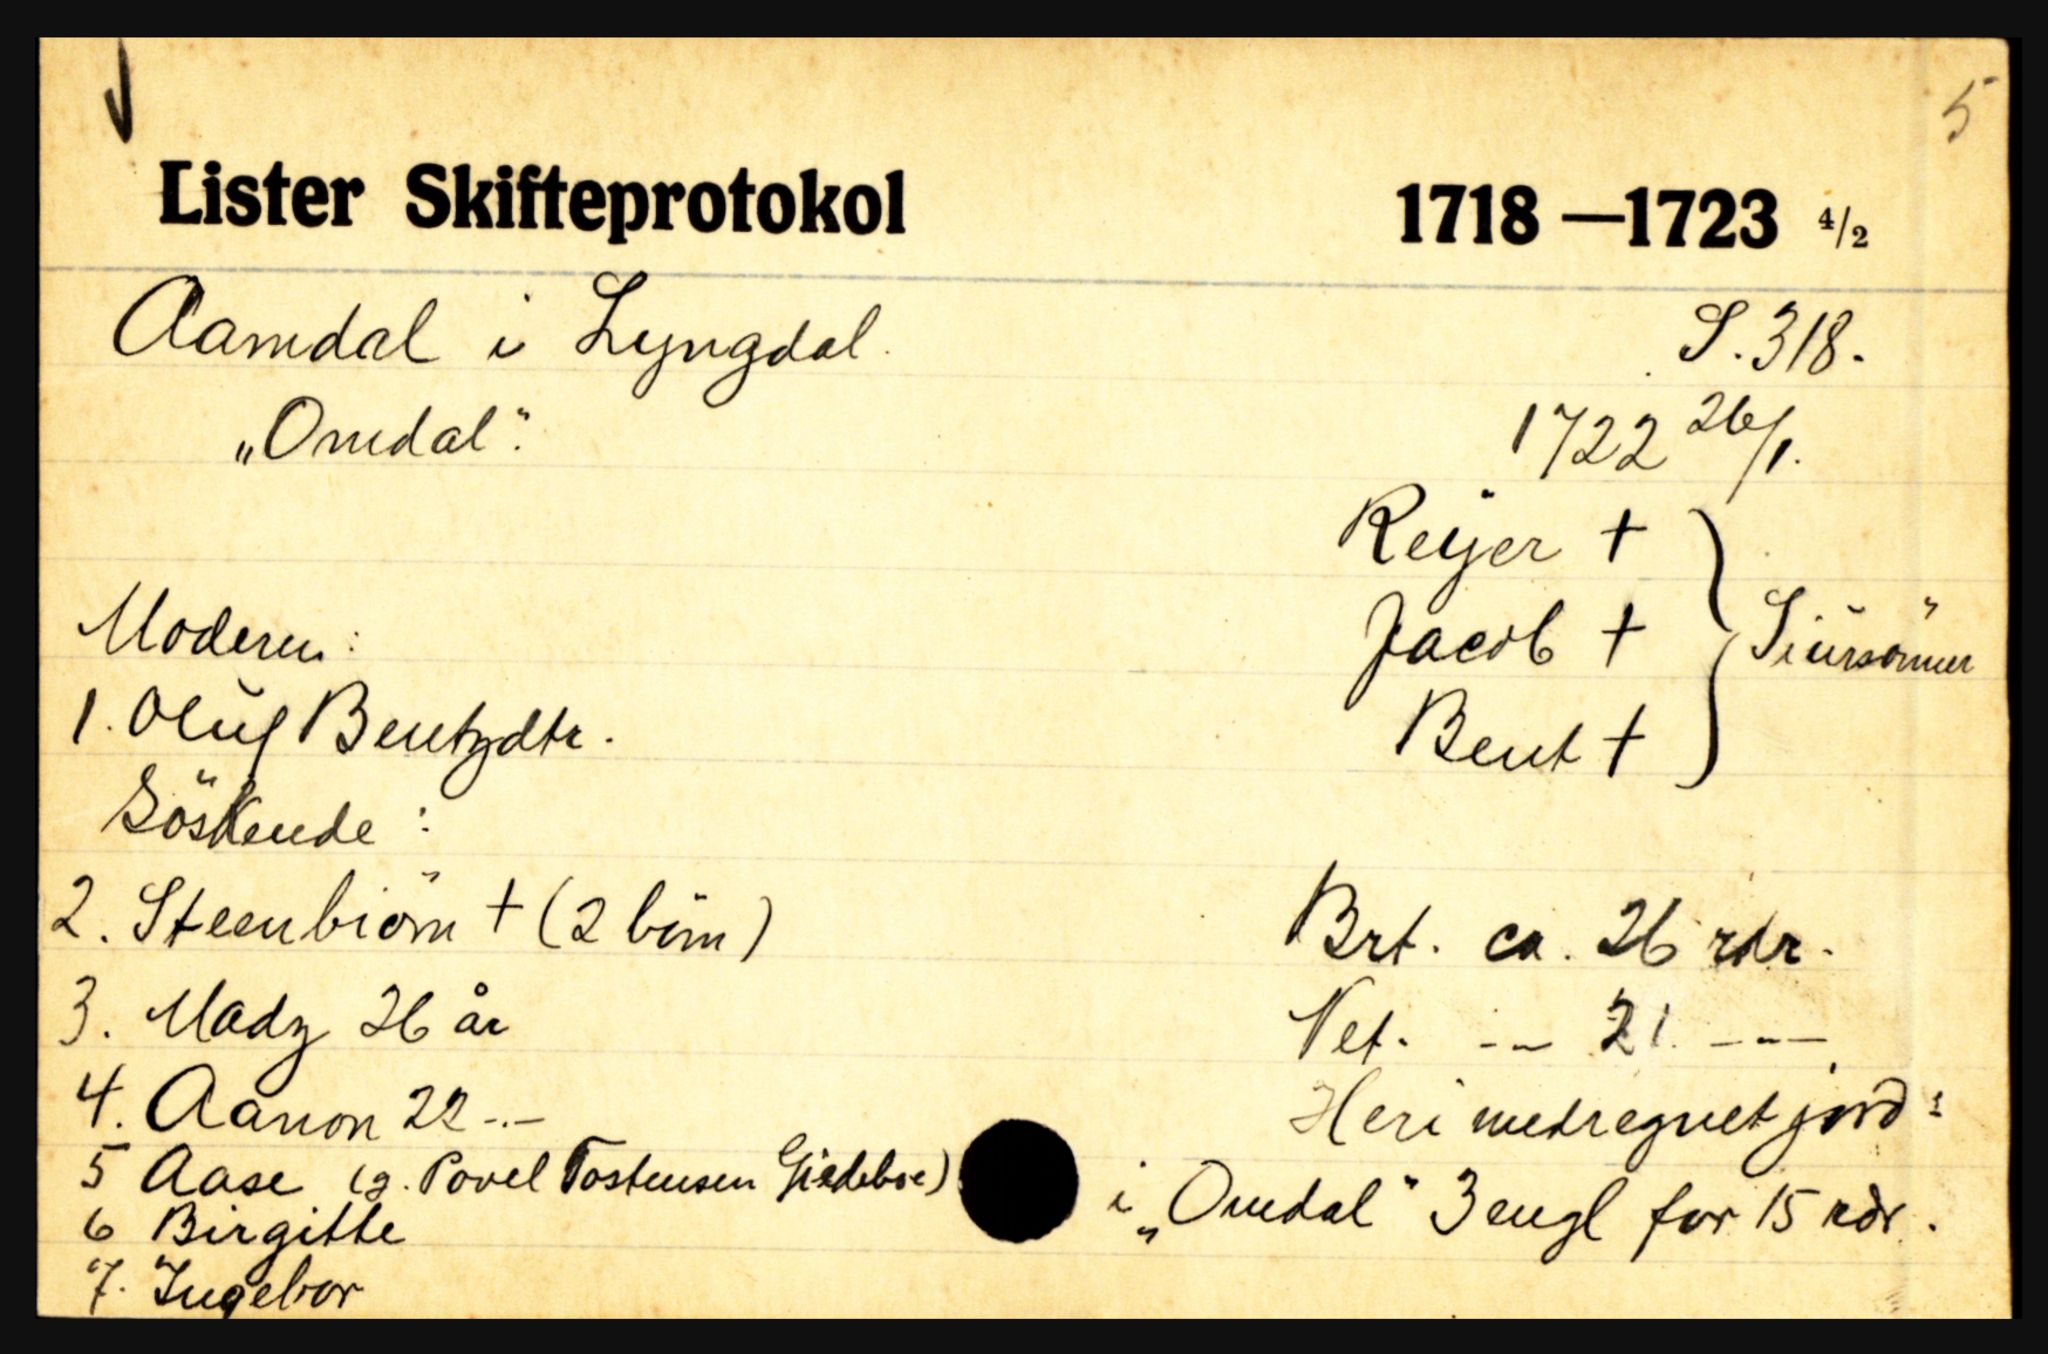 5
Lister Skifteprotokol 1718—1723 4/2
Aamdal i Lyngdal. S. 318.
„Omdal". 1722 26/1.
Reijer +
Jacob + } Siursönner
Bent +
Moderen:
1. Oluf Bentzdtr.
Söskende:
2. Steenbiörn + (2 börn)
3. Madz 26 år
4. Aanon 22 -.-
5 Aase (g. Povel Tostensen Giedeboe)
6 Birgitte
7. Ingebor
Brt. ca. 26 rdr.
Net. -- 21. ---
Heri medregnet jord:
i „Omdal" 3 engl for 15 rdr.